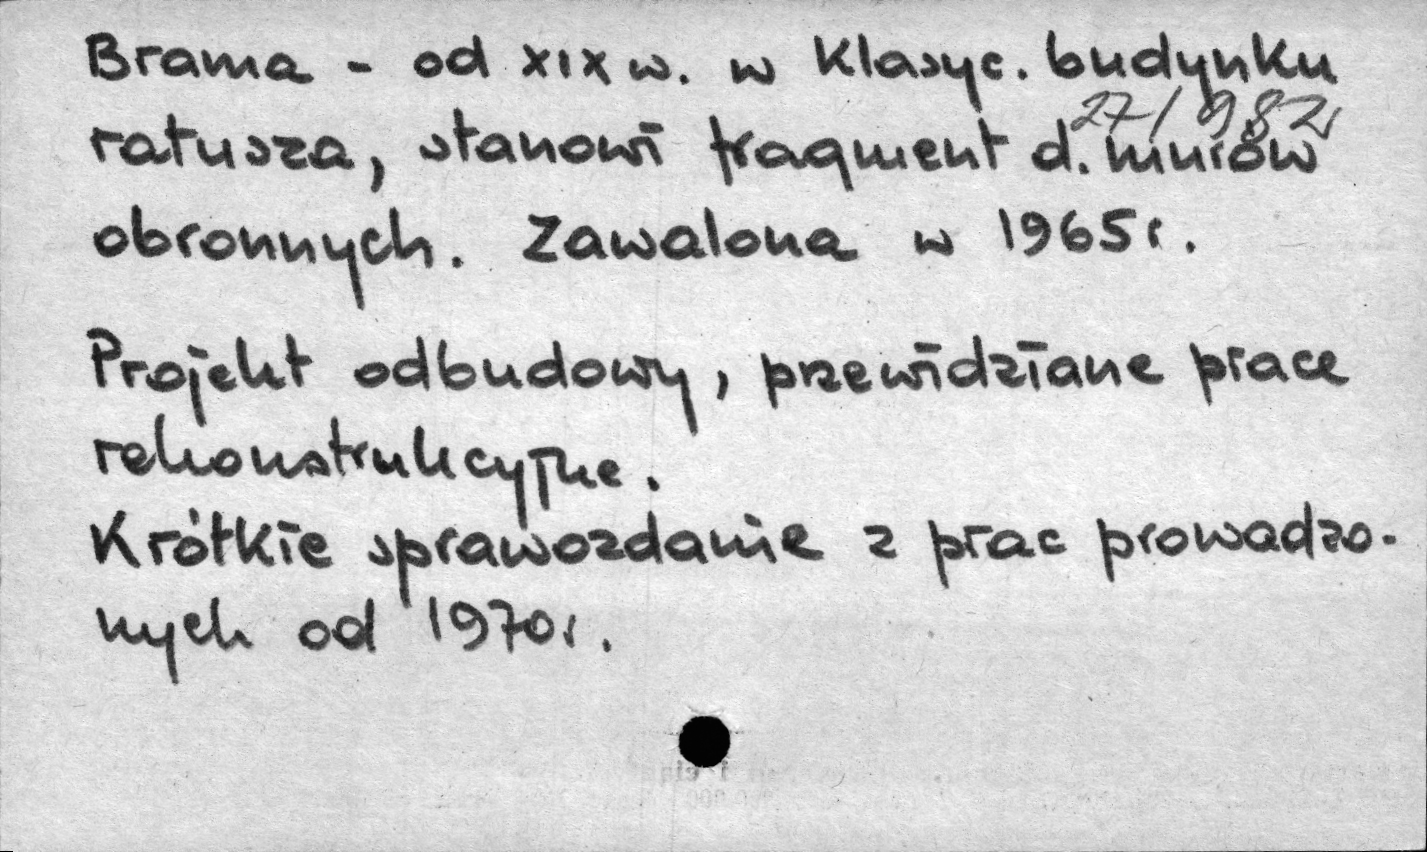 Brama - od XIX w. w Klasyc. budynku
27/982
ratusza, stanowi fragment d. murów
obronnych. Zawalona w 1965 r.
Projekt odbudowy, przewidziane prace
rekonstrukcyjne.
Krótkie sprawozdanie z prac prowadzo-
nych od 1970 r.